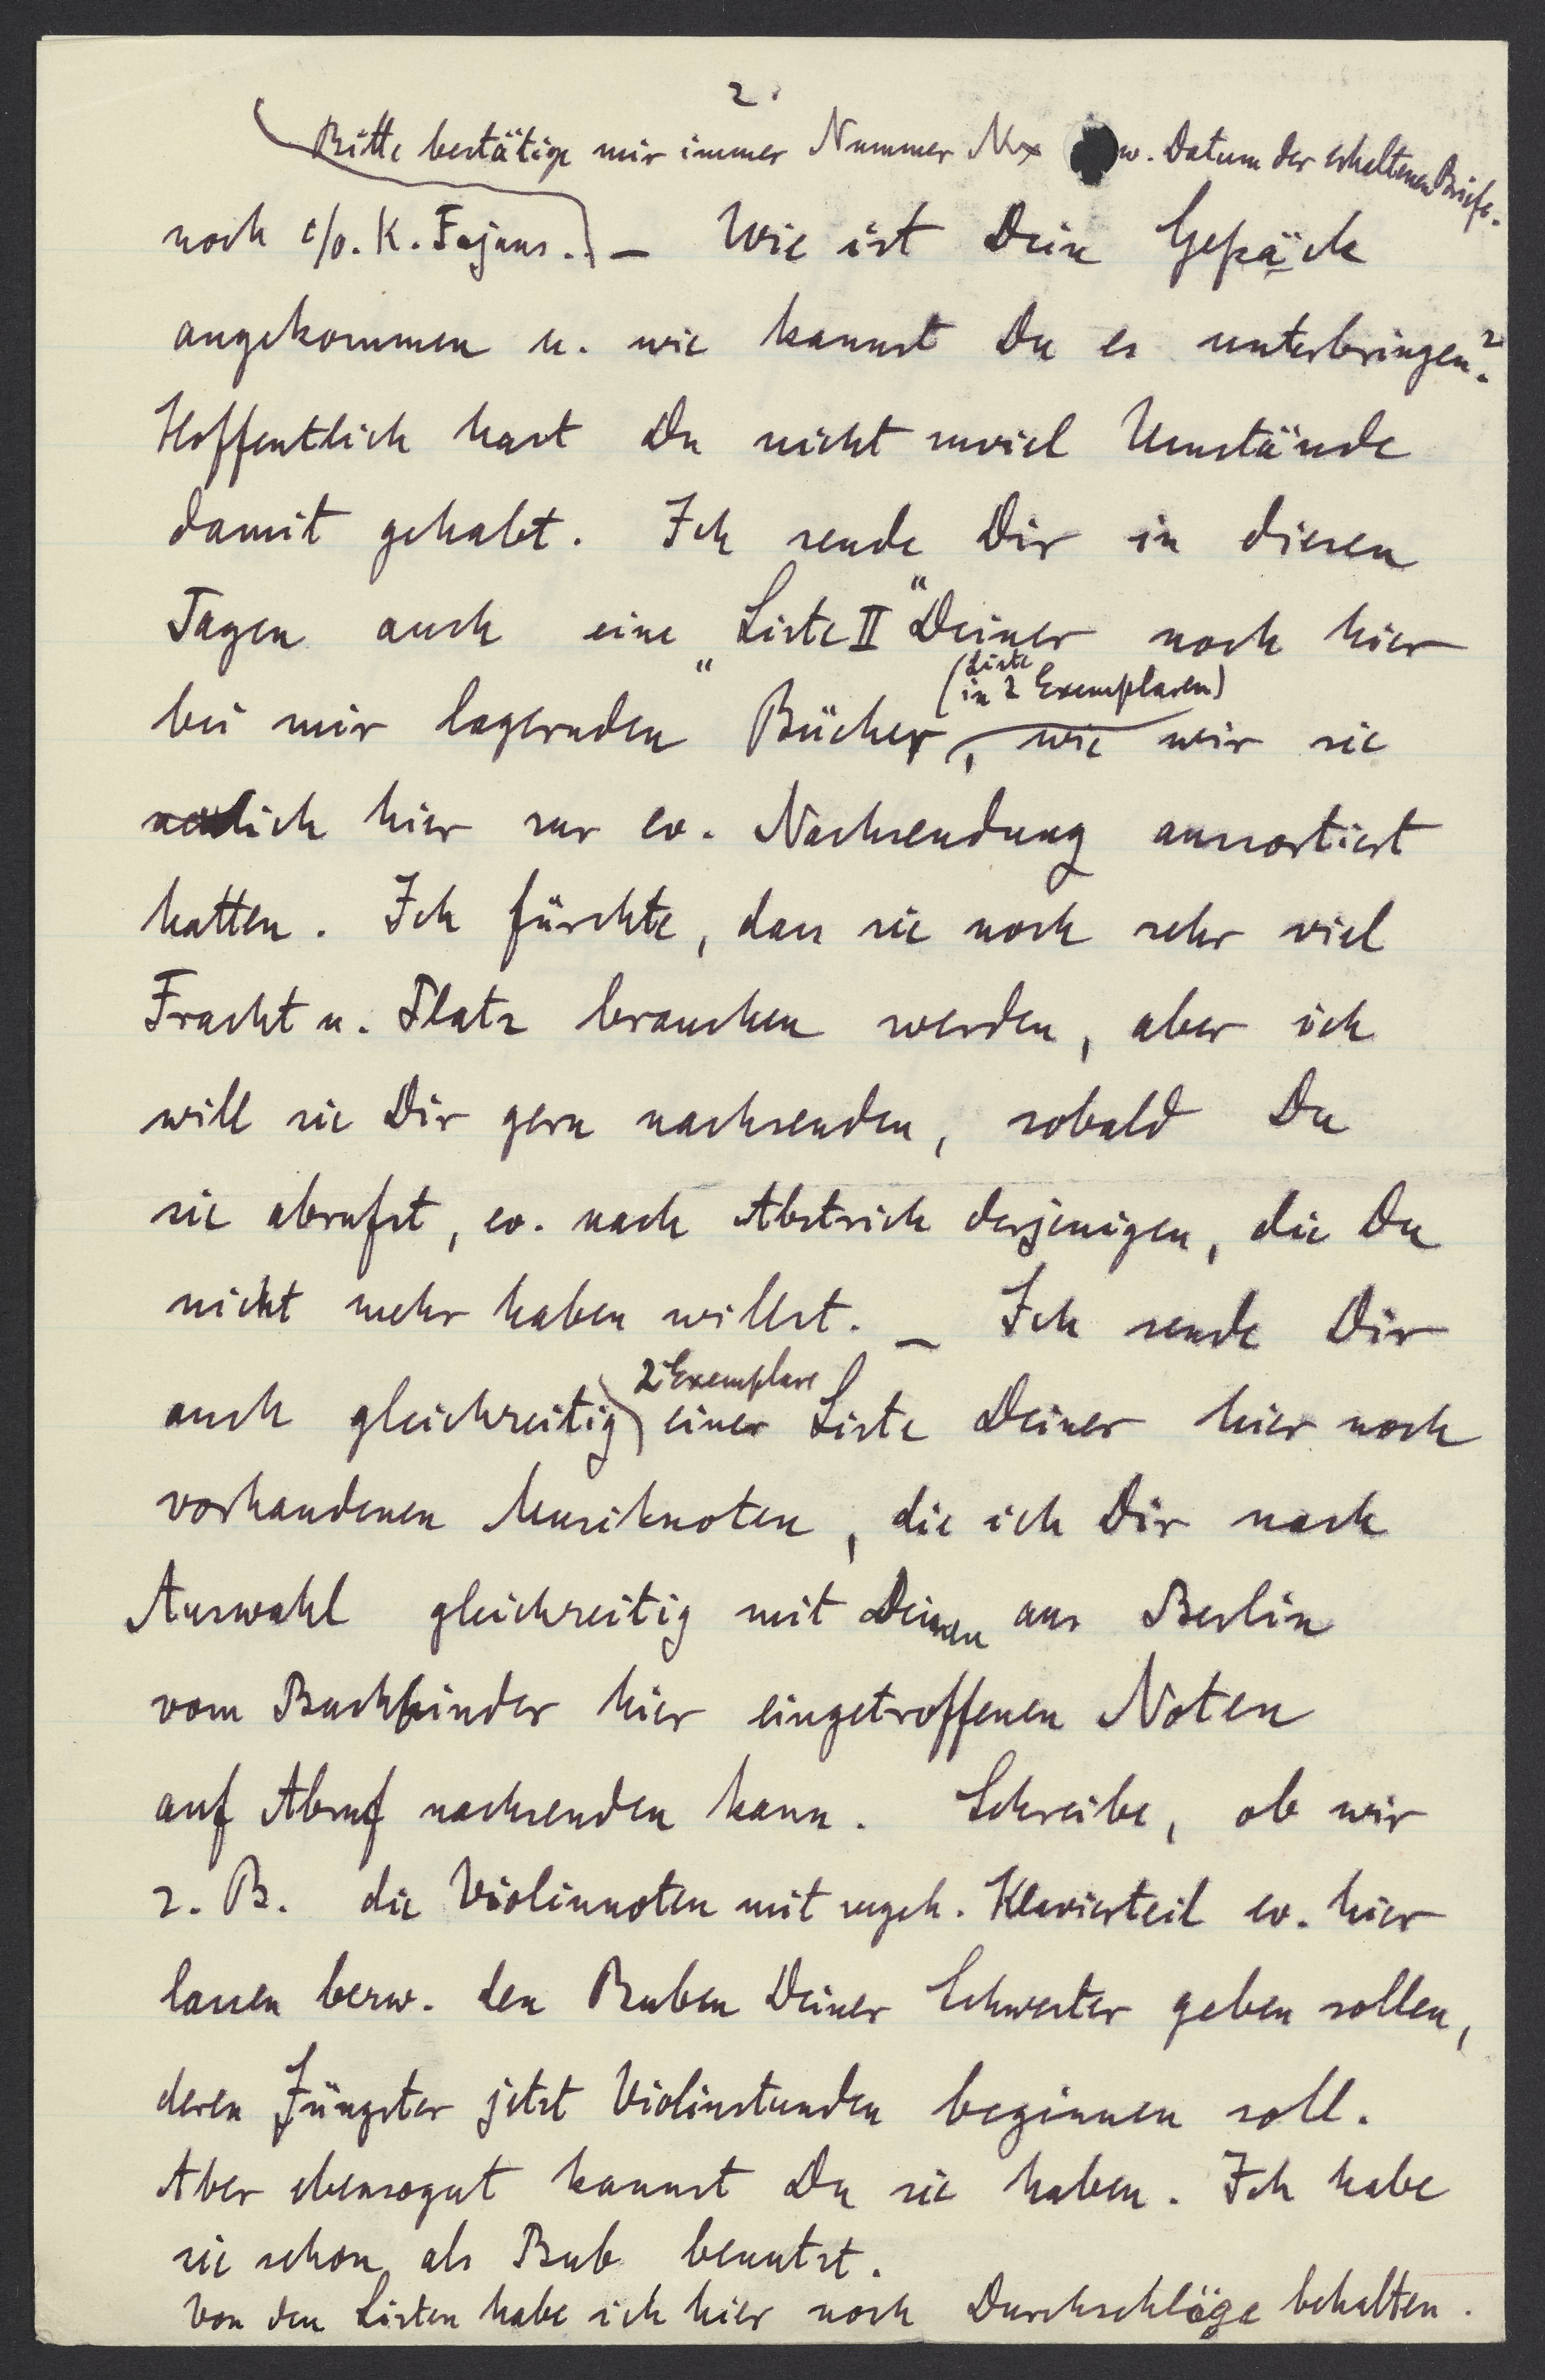 2.
Bitte bestätige mir immer Nummer w. Datum der erhaltenen Briefe.
noch c/o. K. Fajans. – Wie ist Dein Gepäck
angekommen u. wie kannst Du es unterbringen?
Hoffentlich hast Du nicht zuviel Umstände
damit gehabt. Ich sende Dir in diesen
Tagen auch eine "Liste II" Deiner noch hier
(Liste in 2 Exemplaren)
bei mir lagernden Bücher, wie wir sie
neulich hier zur ev. Nachsendung aussortiert
hatten. Ich fürchte, dass sie noch sehr viel
Fracht u. Platz brauchen werden, aber ich
will sie Dir gern nachsenden, sobald Du
sie abrufst, ev. nach Abstrich derjenigen, die Du
nicht mehr haben willst. – Ich sende Dir
2 Exemplare
auch gleichzeitig einer Liste Deiner hier noch
vorhandenen Musiknoten, die ich Dir nach
Auswahl gleichzeitig mit Deinen aus Berlin
vom Buchbinder hier eingetroffenen Noten
auf Abruf nachsenden kann. Schreibe, ob wir
z. B. die Violinnoten mit zugeh. Klavierteil ev. hier
lassen bezw. den Buben Deiner Schwester geben sollen,
deren Jüngster jetzt Violinstunden beginnen soll.
Aber ebensogut kannst Du sie haben. Ich habe
sie schon als Bub benutzt.
Von den Listen habe ich hier noch Durchschläge behalten.